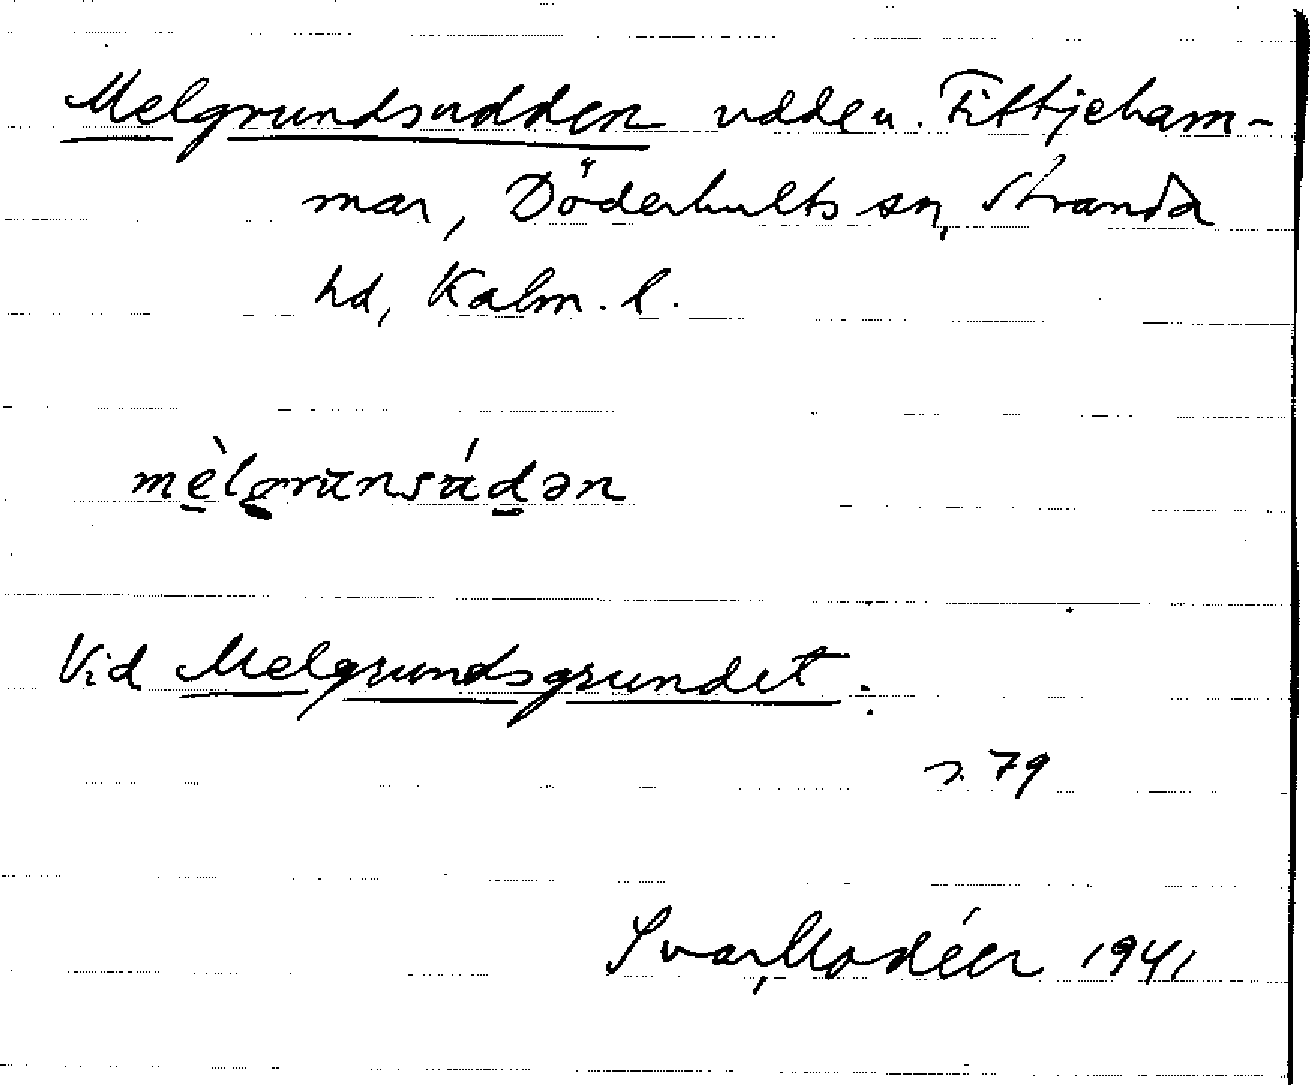 Melgrundsudden udde u. Fittjeham-
mar, Döderhults sn, Stranda
hd, Kalm. l.
mèlgrunsúdən
Vid Melgrundsgrundet.
s. 79
Ivar Modéer 1941